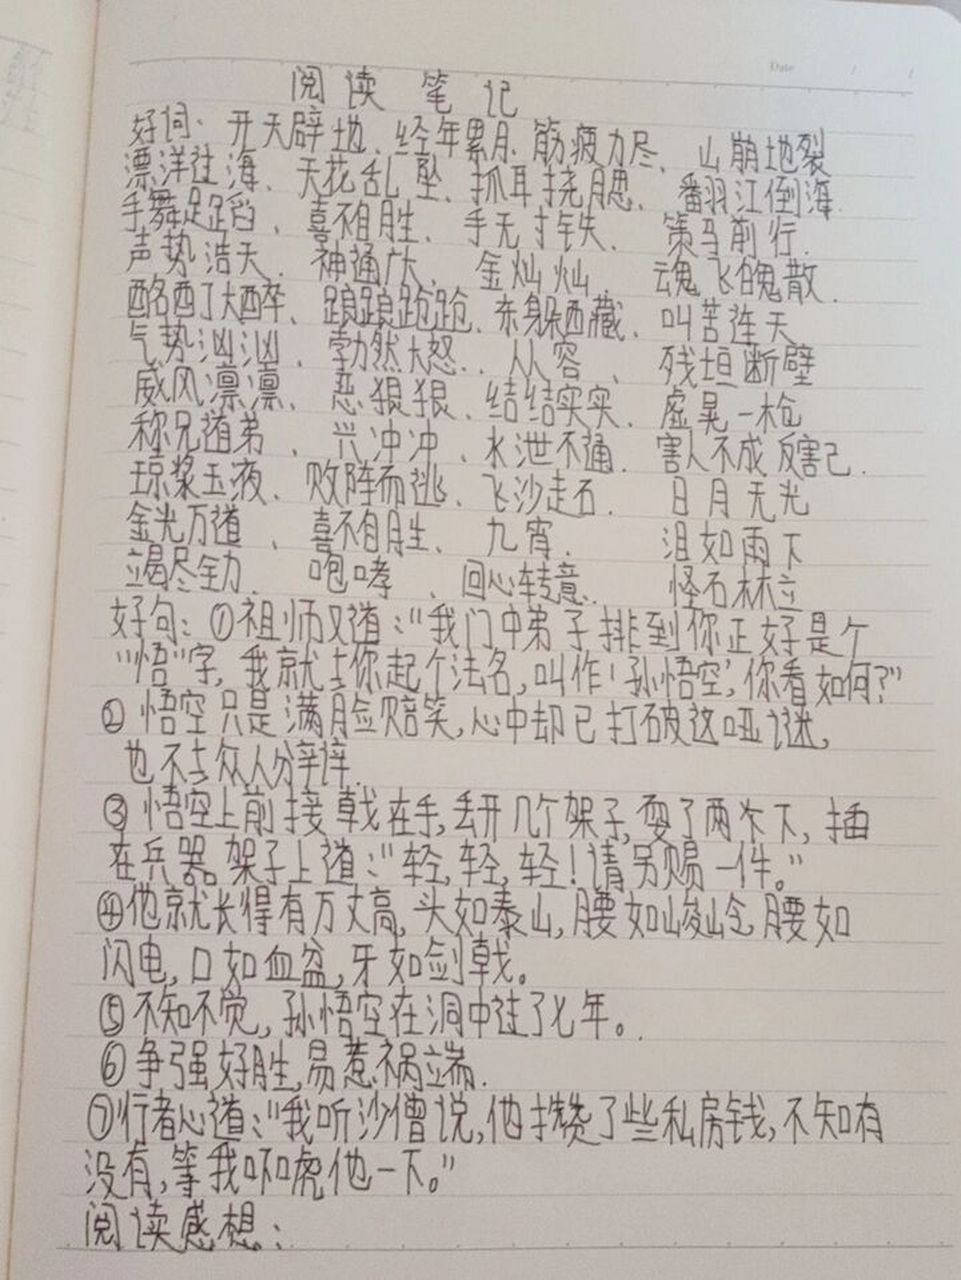 Date / /
阅读笔记
好词:开天辟地、经年累月、筋疲力尽、山崩地裂
漂洋过海、天花乱坠、抓耳挠腮、翻江倒海
手舞足蹈、喜不自胜、手无寸铁、策马前行
声势浩大、神通广大、金灿灿、魂飞魄散
酩酊大醉、踉踉跄跄、东躲西藏、叫苦连天
气势汹汹、勃然大怒、从容、残垣断壁
威风凛凛、恶狠狠、结结实实、虚晃一枪
称兄道弟、兴冲冲、水泄不通、害人不成反害己.
琼浆玉液、败阵而逃、飞沙走石、日月无光
金光万道、喜不自胜、九霄、泪如雨下
竭尽全力、咆哮、回心转意、怪石林立
好句:①祖师又道:“我门中弟子排到你正好是个
“悟”字,我就与你起个法名,叫作‘孙悟空’,你看如何?”
②悟空只是满脸赔笑,心中却已打破这哑谜,
也不与众人分辩.
③悟空上前接戟在手,丢开几个架子,耍了两个下,插
在兵器架子上道:“轻,轻,轻!请另赐一件。”
④他就长得有万丈高,头如泰山,腰如峻岭,腰如
闪电,口如血盆,牙如剑戟。
⑤不知不觉,孙悟空在洞中过了七年。
⑥争强好胜,易惹祸端.
⑦行者心道:“我听沙僧说,他攒了些私房钱,不知有
没有,等我吓唬他一下。”
阅读感想: